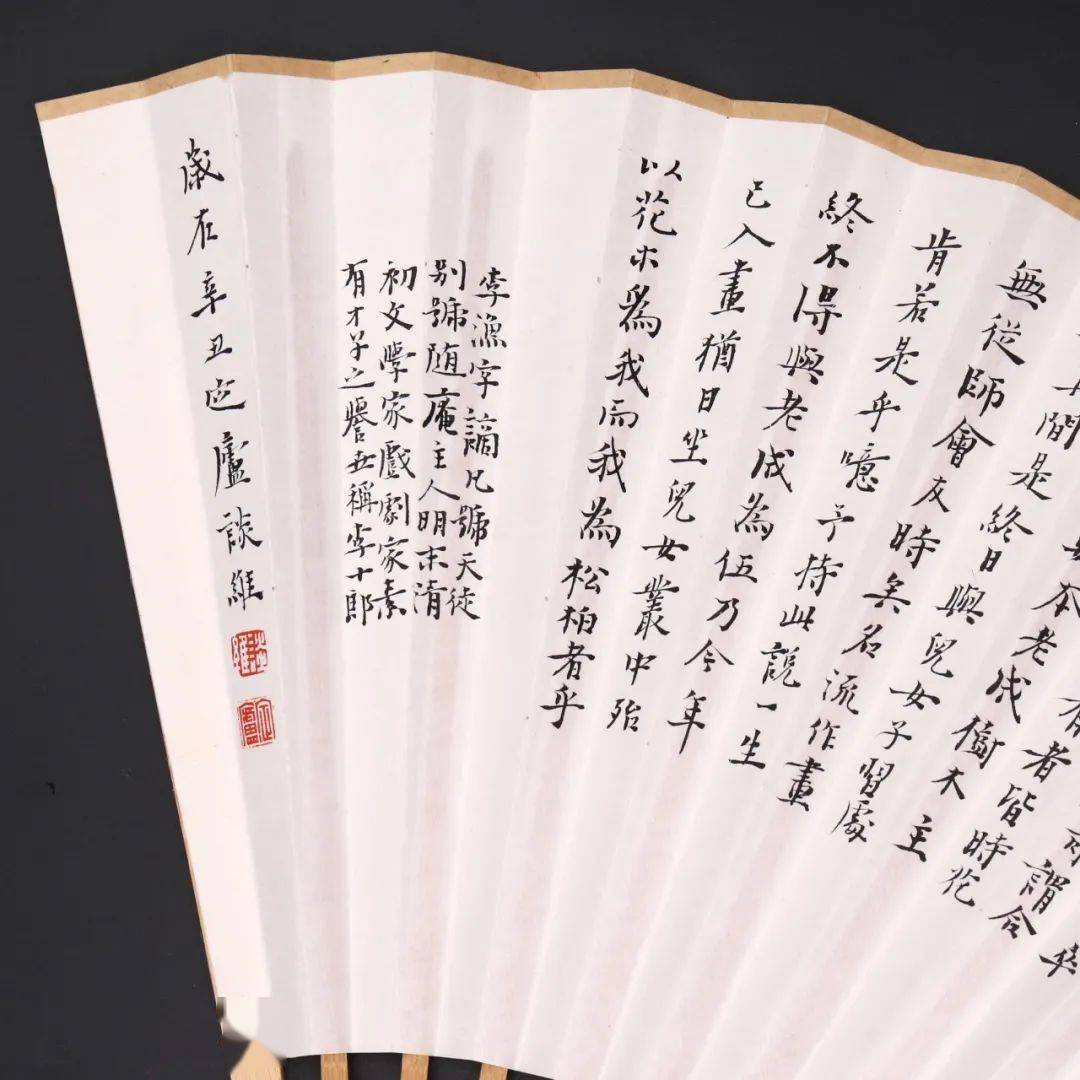 謂合
有者皆時花
本老成樹木主
間是終日與兒女子習處
無從師會友時矣名流作畫
肯若是乎噫予持此説一生
終不得與老成為伍乃今年
已入畫猶日坐兒女叢中殆
以花木爲我而我為松柏者乎
李漁字謫凡號天徒
别號随庵主人明末清
初文學家戲劇家素
有才子之譽世稱李十郎
歲在辛丑疋廬談維
談維
疋廬